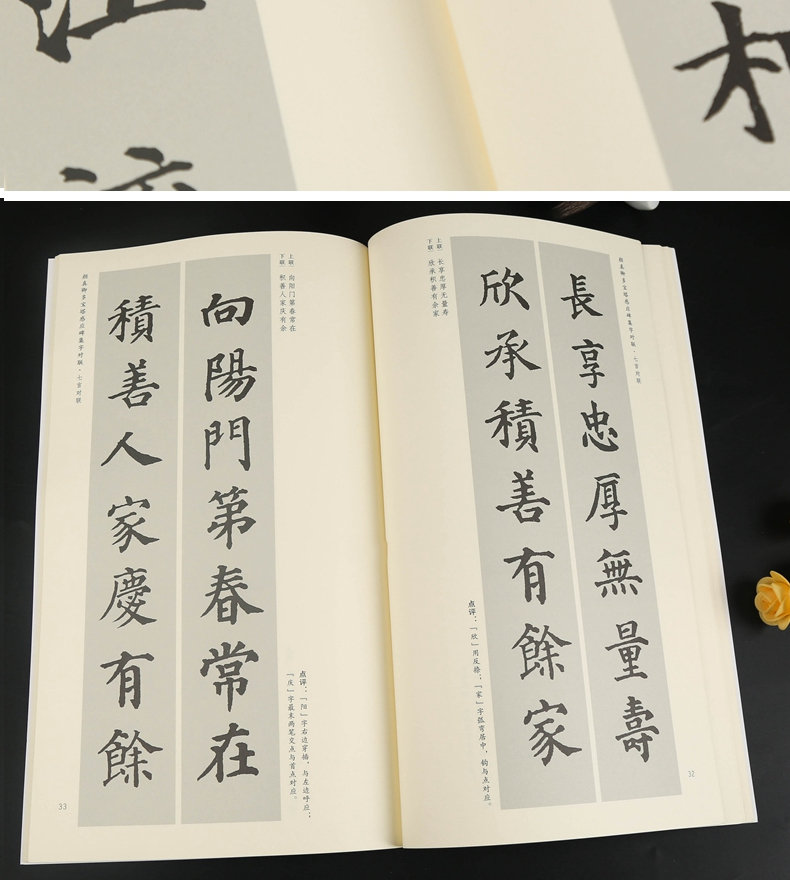 顏真卿多宝塔感应碑集字对联·七言对联
長享忠厚無量壽
欣承積善有餘家
上联 长享忠厚无量寿
下联 欣承积善有余家
点评：「欣」用反捺；「家」字弧弯居中，钩与点对应。
32
上联 向阳门第春常在
下联 积善人家庆有余
向陽門第春常在
積善人家慶有餘
点评：「阳」字右边穿插，与左边呼应；
「庆」字最末两笔交点与首点对应。
颜真卿多宝塔感应碑集字对联·七言对联
33